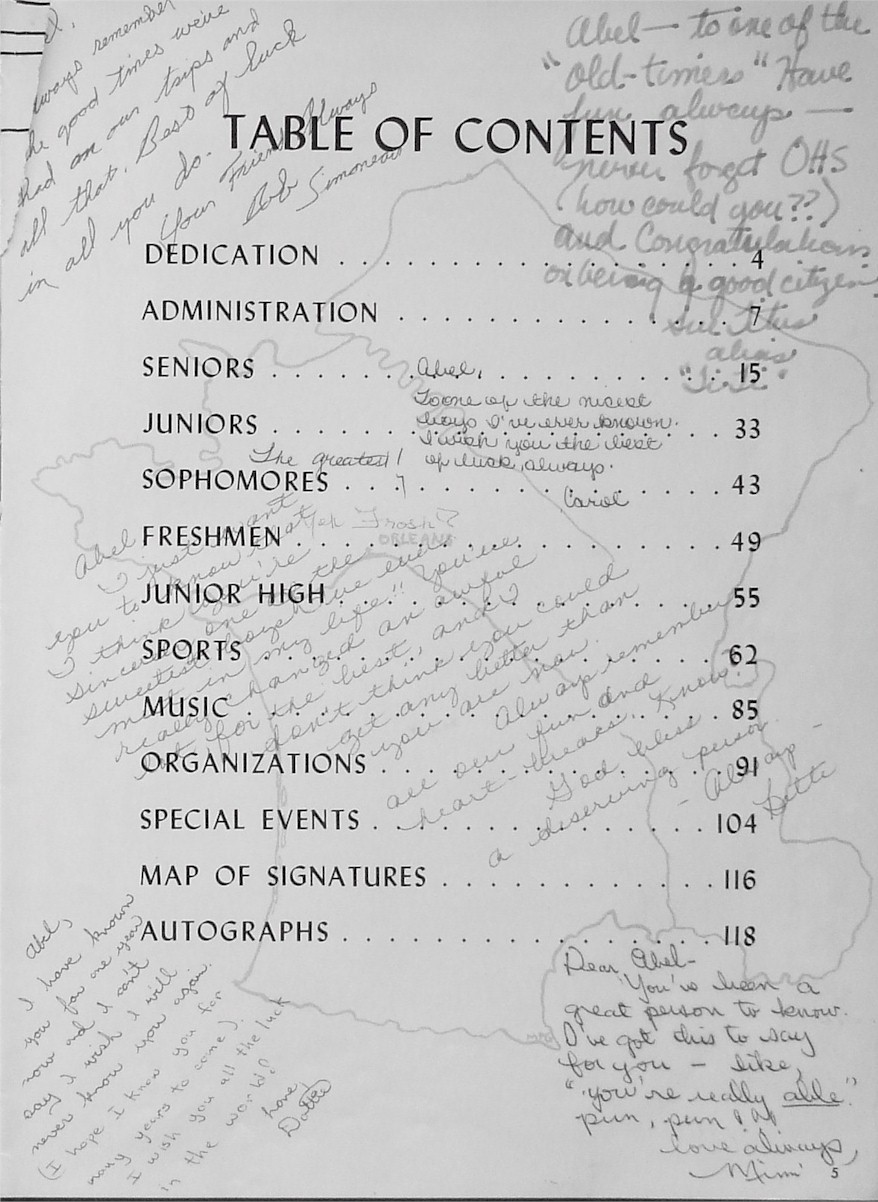 always remember
the good times we've
had on our trips and
all that. Best of luck
in all you do.
Your Friend Always
Bob Simoneau
Abel — to one of the
"old-timers" Have
fun always —
never forget OHS
(how could you??)
and Congratulations
on being a good citizen
Sue Titus
alias
TABLE OF CONTENTS
DEDICATION . . . . . . . . . . . . . . . . . . 4
ADMINISTRATION . . . . . . . . . . . . . . . . 7
SENIORS . . . . . . . . . . . . . . . . . . 15
JUNIORS . . . . . . . . . . . . . . . . . . 33
SOPHOMORES . . . . . . . . . . . . . . . . 43
FRESHMEN . . . . . . . . . . . . . . . . . . 49
JUNIOR HIGH . . . . . . . . . . . . . . . . 55
SPORTS . . . . . . . . . . . . . . . . . . 62
MUSIC . . . . . . . . . . . . . . . . . . 85
ORGANIZATIONS . . . . . . . . . . . . . . . 91
SPECIAL EVENTS . . . . . . . . . . . . . . . 104
MAP OF SIGNATURES . . . . . . . . . . . . 116
AUTOGRAPHS . . . . . . . . . . . . . . . . 118
Abel,
To one of the nicest
boys I've ever known.
I wish you the best
of luck, always.
Carol
The greatest!
Yeh Frosh?
ORLEANS
Abel
I just want
you to know that
I think you're
sincerely one of the
sweetest boys I've ever
met in my life!! You've
really changed an awful
lot, for the best, and I
don't think you could
get any better than
you are now.
Always remember
all our fun and
heart-breaks. Know?
God bless
a deserving person
- Always -
Abel,
I have known
you for one year
now and I can't
say I wish I will
never know you again.
(I hope I know you for
many years to come).
I wish you all the luck
in the world!
Love,
Dottie
Dear Abel-
You've been a
great person to know.
I've got this to say
for you — like,
"you're really able"
pun, pun!
love always,
Mimi
5